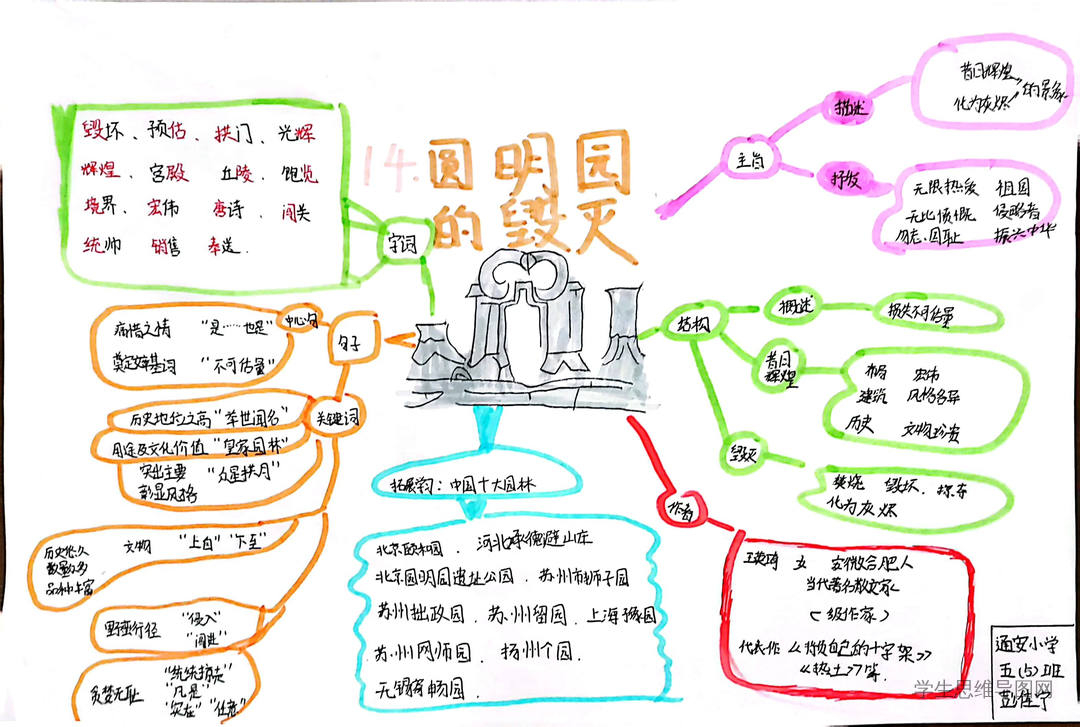 14.圆明园
的毁灭
毁坏、预估、拱门、光辉
辉煌、宫殿 丘陵、饱览
境界、宏伟 唐诗、闯关
统帅 销售 奉送.
字词
主旨
描述
昔日辉煌
化为灰烬
的景象
抒发
无限热爱 祖国
无比愤慨 侵略者
勿忘国耻 振兴中华
句子
中心句
痛惜之情 “是……也是”
奠定好基词 “不可估量”
关键词
历史地位之高“举世闻名”
用途及文化价值“皇家园林”
突出主要 “众星拱月”
彰显风格
历史悠久 文物 “上自”“下至”
数量多
品种丰富
野蛮行径 “侵入”
“闯进”
贪婪无耻 “统统掠夺”
“凡是”
“实在”“任意”
结构
概述
损失不可估量
昔日
辉煌
布局 宏伟
建筑 风格各异
历史 文物珍贵
毁灭
焚烧 毁坏、掠夺
化为灰烬
拓展韵:中国十大园林
北京颐和园、河北承德避山庄
北京圆明园遗址公园、苏州市狮子园
苏州拙政园、苏州留园、上海豫园
苏州网师园、扬州个园.
无锡寄畅园.
作者
王英琦 女 安徽合肥人
当代著名散文家
(一级作家)
代表作《背负自己的十字架》
《热土》等.
通安小学
五(5)班
彭佳宁
学生思维导图网